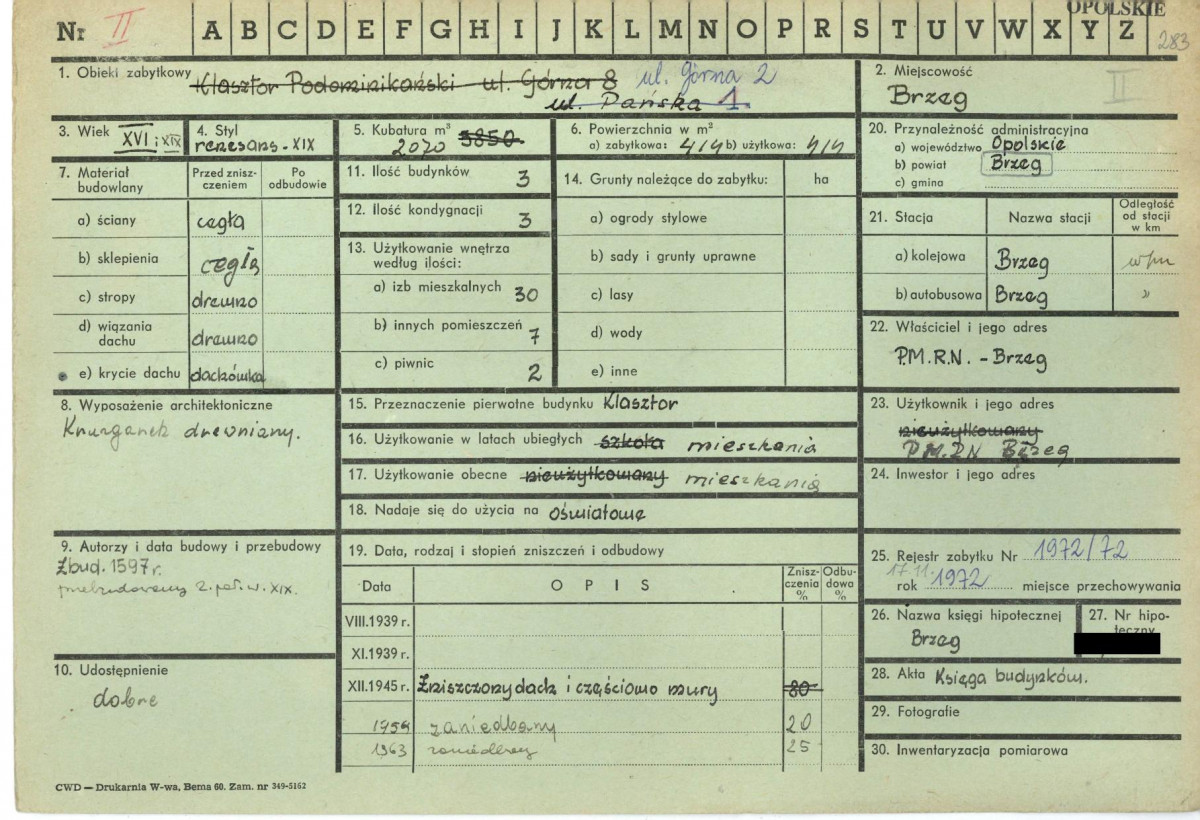 OPOLSKIE
Nr II A B C D E F G H I J K L M N O P R S T U V W X Y Z 283
1. Obiekt zabytkowy Klasztor Podominikański ul. Górna 8 ul. Górna 2
ul. Pańska 1.
2. Miejscowość
Brzeg II
3. Wiek XVI i XIX
4. Styl
renesans - XIX
5. Kubatura m³ 5850.
2070
6. Powierzchnia w m²
a) zabytkowa: 414 b) użytkowa: 414
20. Przynależność administracyjna
a) województwo Opolskie
b) powiat Brzeg
c) gmina
7. Materiał budowlany
Przed zniszczeniem
Po odbudowie
a) ściany cegła
b) sklepienia cegła
c) stropy drewno
d) wiązania dachu drewno
e) krycie dachu dachówka
11. Ilość budynków 3
12. Ilość kondygnacji 3
13. Użytkowanie wnętrza
według ilości:
a) izb mieszkalnych 30
b) innych pomieszczeń 7
c) piwnic 2
14. Grunty należące do zabytku: ha
a) ogrody stylowe
b) sady i grunty uprawne
c) lasy
d) wody
e) inne
21. Stacja Nazwa stacji Odległość od stacji w km
a) kolejowa Brzeg
b) autobusowa Brzeg "
22. Właściciel i jego adres
P.M.R.N. - Brzeg
8. Wyposażenie architektoniczne
Krurganek drewniany.
15. Przeznaczenie pierwotne budynku Klasztor
16. Użytkowanie w latach ubiegłych szkoła mieszkania
17. Użytkowanie obecne nieużytkowany mieszkania
18. Nadaje się do użycia na oświatowe
23. Użytkownik i jego adres
nieużytkowany
P.M.RN Brzeg
24. Inwestor i jego adres
9. Autorzy i data budowy i przebudowy
Zbud. 1597 r.
przebudowany 2. poł. w. XIX.
19. Data, rodzaj i stopień zniszczeń i odbudowy
Data OPIS Zniszczenia % Odbudowa %
VIII.1939 r.
XI.1939 r.
XII.1945 r. Zniszczony dach i częściowo mury 80
1959 zaniedbany 20
1963 zaniedbany 25
25. Rejestr zabytku Nr 1972/72
17.11.
rok 1972 miejsce przechowywania
26. Nazwa księgi hipotecznej
Brzeg
27. Nr hipoteczny
10. Udostępnienie
dobre
28. Akta Księga budynków.
29. Fotografie
30. Inwentaryzacja pomiarowa
CWD — Drukarnia W-wa, Bema 60. Zam. nr 349-5162